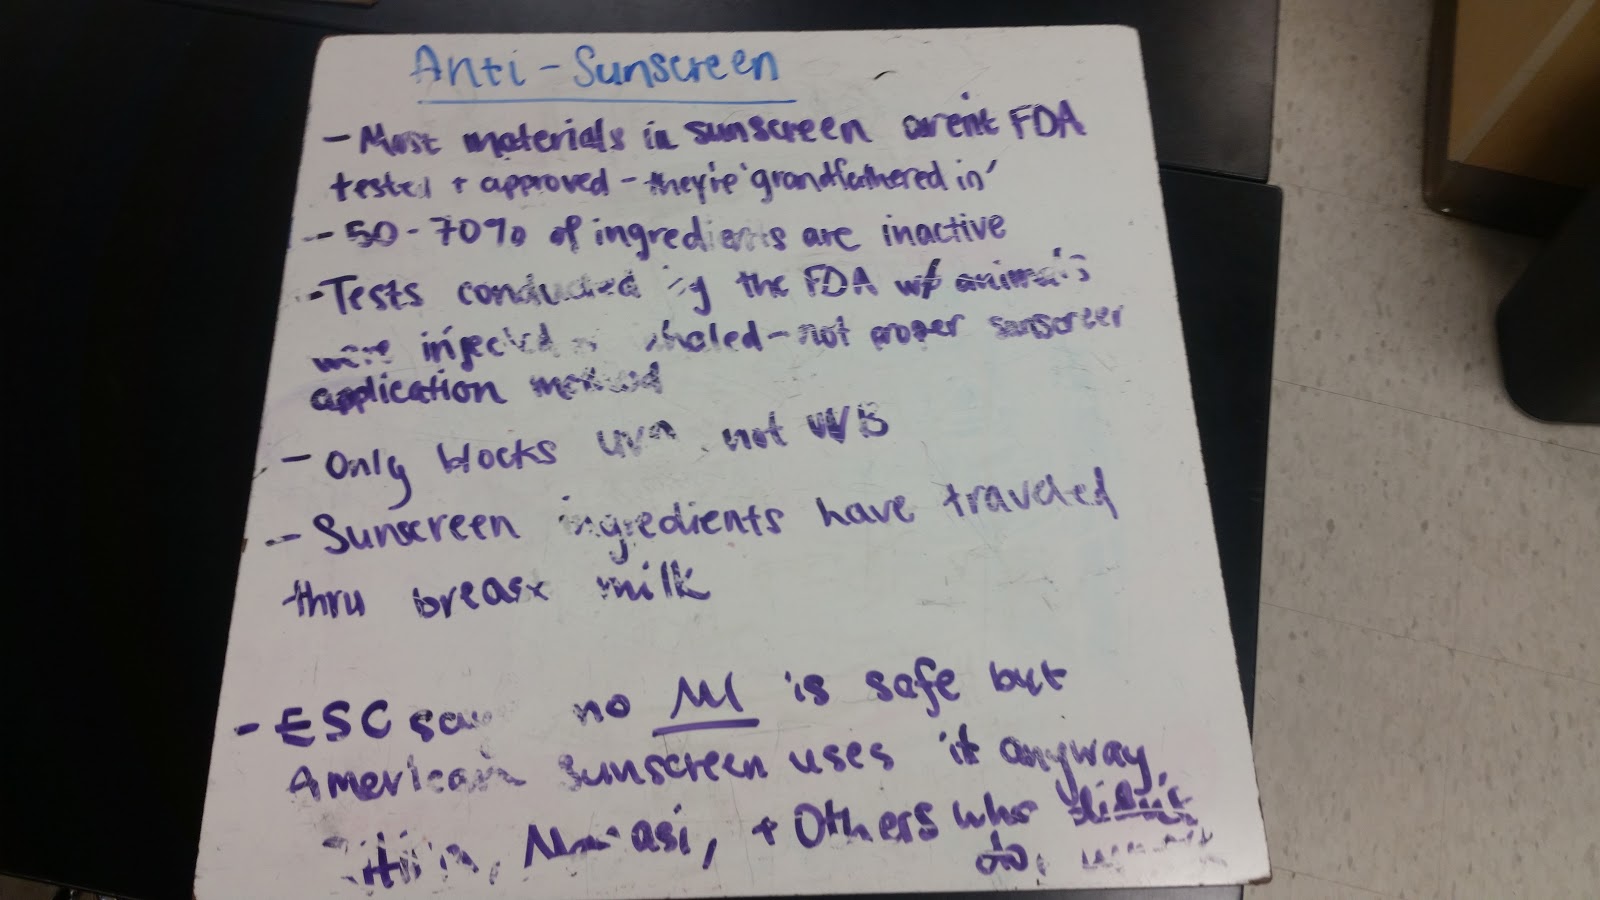 Anti-Sunscreen
- Most materials in sunscreen arent FDA
tested + approved - they're 'grandfathered in'
- 50-70% of ingredients are inactive
- Tests conducted by the FDA w/ animals
were injected inhaled - not proper sunscreen
application method
- Only blocks UVA not UVB
- Sunscreen ingredients have traveled
thru breast milk
- ESC say no MI is safe but
American sunscreen uses it anyway,
+ Others who
do,